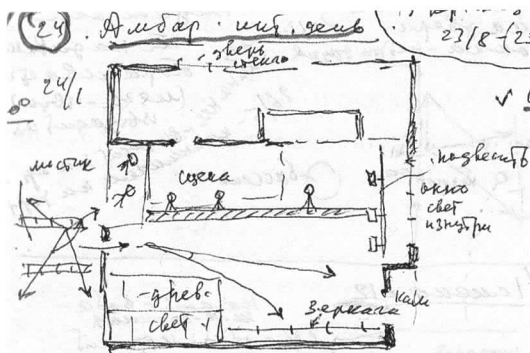 24. Амбар. инт. день
23/8
24/1
дверь
стекло
мостик
сцена
подвесить
окно
свет
изнутри
древ.
свет
Зеркала
кам